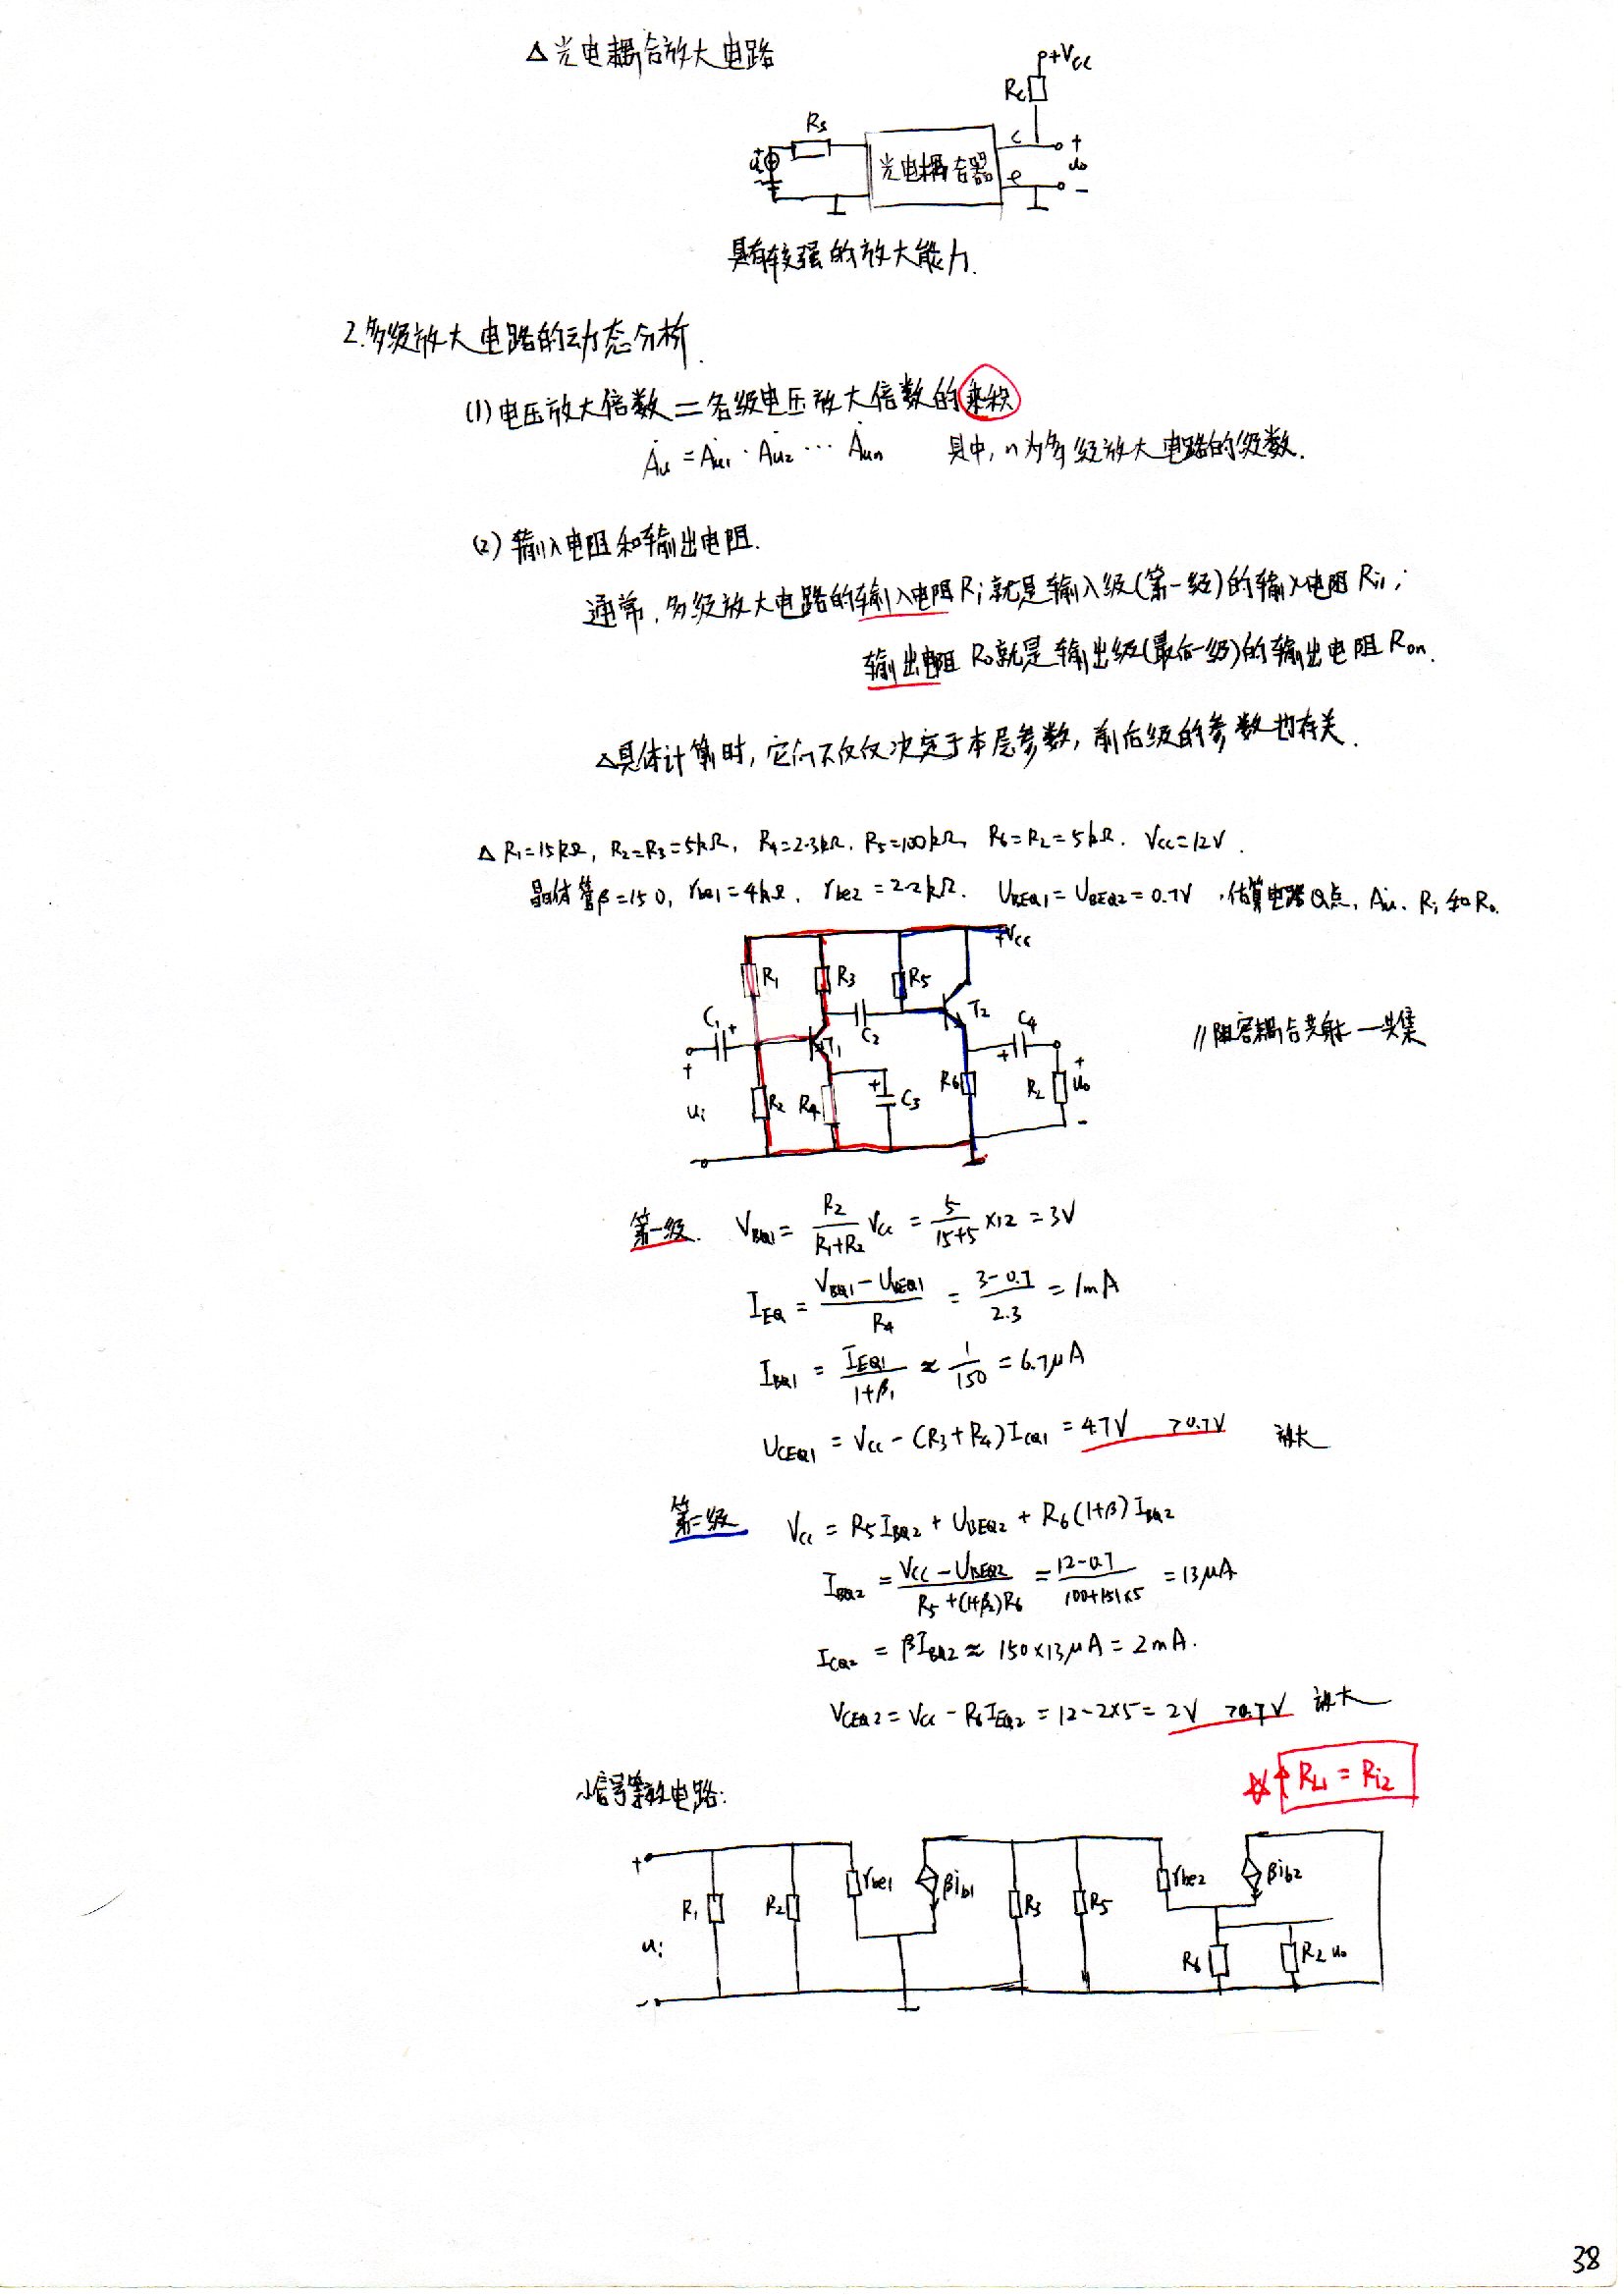 △光电耦合放大电路
+Vcc
Rc
Rs
c
+
光电耦合器
uo
e
-
具有较强的放大能力.
2.多级放大电路的动态分析.
(1) 电压放大倍数 = 各级电压放大倍数的乘积
Ȧu = Ȧu1 · Ȧu2 ··· Ȧun 其中, n为多级放大电路的级数.
(2) 输入电阻和输出电阻.
通常, 多级放大电路的输入电阻Ri就是输入级(第一级)的输入电阻Ri1;
输出电阻Ro就是输出级(最后一级)的输出电阻Ron.
△具体计算时, 它们不仅仅决定于本层参数, 前后级的参数也有关.
△ R1=15kΩ, R2=R3=5kΩ, R4=2.3kΩ, R5=100kΩ, R6=RL=5kΩ. Vcc=12V.
晶体管β=150, rbe1=4kΩ, rbe2=2.2kΩ. UBEQ1=UBEQ2=0.7V ,估算电路Q点, Ȧu、Ri和Ro.
+Vcc
R1 R3 R5
C1 + T1 C2 T2 C4
+ ui R2 R4 + C3 R6 + RL + uo -
//阻容耦合共射—共集
第一级. VBQ1 = R2/(R1+R2) Vcc = 5/(15+5) ×12 = 3V
IEQ = (VBQ1 - UBEQ1)/R4 = (3-0.7)/2.3 = 1mA
IBQ1 = IEQ1/(1+β1) ≈ 1/150 = 6.7μA
UCEQ1 = Vcc - (R3+R4)ICQ1 = 4.7V >0.7V 放大
第二级 Vcc = R5IBQ2 + UBEQ2 + R6(1+β)IBQ2
IBQ2 = (Vcc - UBEQ2)/(R5+(1+β2)R6) = (12-0.7)/(100+151×5) = 13μA
ICQ2 = βIBQ2 ≈ 150×13μA = 2mA.
VCEQ2 = Vcc - R6IEQ2 = 12-2×5 = 2V >0.7V 放大
RL1 = Ri2
小信号等效电路:
+ rbe1 βib1 rbe2 βib2
R1 R2 R3 R5
ui R6 RL uo
-
38